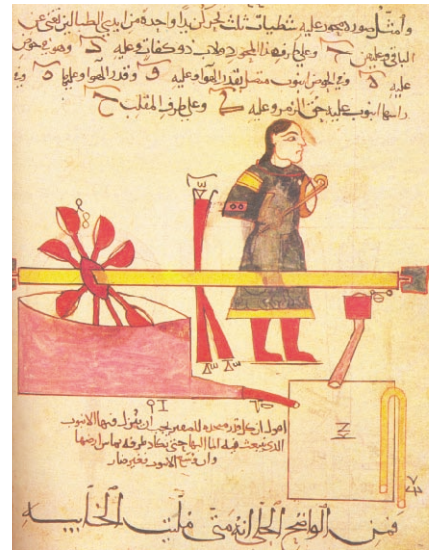 وأمثل صورة محور عليه شظيات ثلث لتحركن يدا واحدة من ايدي الطبالين تغنى عن
الباقي وعليتين ح وعلى طرف هذا المحور دولاب ذو كفات وعليه د وهو في حوض
عليه ه وفي الحوض انبوب متصل بقدر الهوا وعليه و وقدر الهوا وعليها ه وفي
راسها انبوب عليه حق الزمر وعليه ك وعلى طرف المقلب ح
اقول ان كل قدر متخذة للصفير يجب ان فيها الانبوب
الذي ينبعث فيه الما اليها حتى يكاد طرفه يماس ارضها
وان الانبوب فغير ضار
فمن الواضح الجلي انه متى ملئت الخابيه